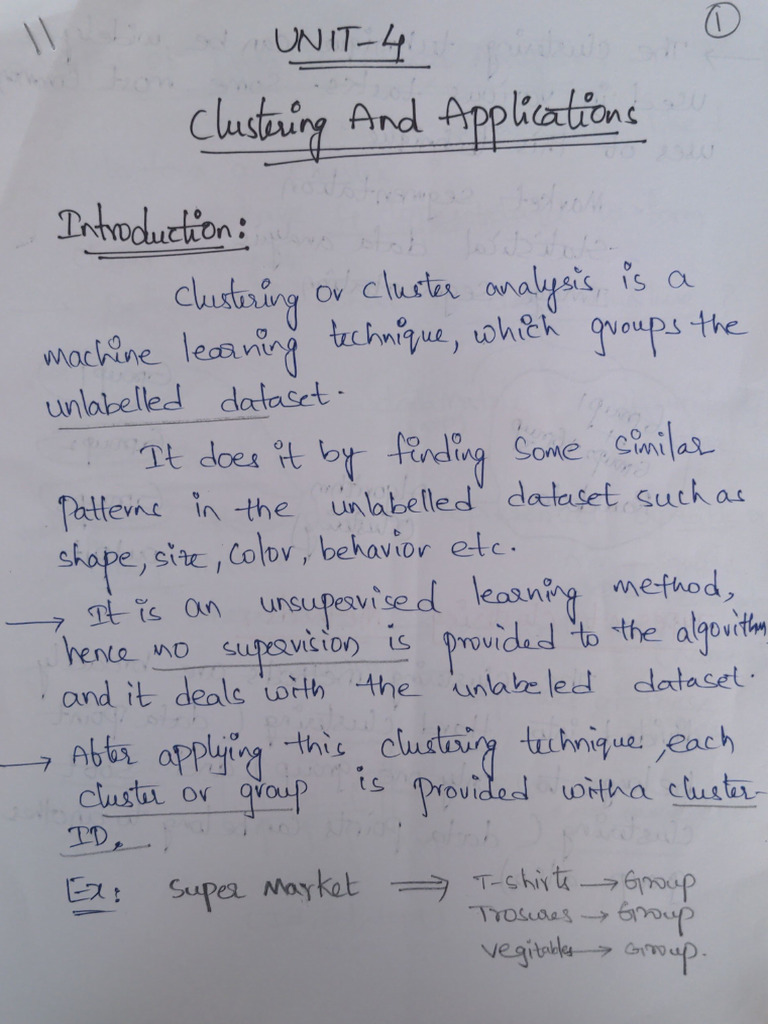 ①
UNIT-4
Clustering And Applications
Introduction:
Clustering or cluster analysis is a
machine learning technique, which groups the
unlabelled dataset.
It does it by finding some similar
Patterns in the unlabelled dataset such as
shape, size, color, behavior etc.
→ It is an unsupervised learning method,
hence no supervision is provided to the algorithm
and it deals with the unlabeled dataset.
→ After applying this clustering technique, each
cluster or group is provided with a cluster-
ID.
Ex: Super Market ⟹ T-shirts → Group
Troseres → Group
Vegitables → Group.